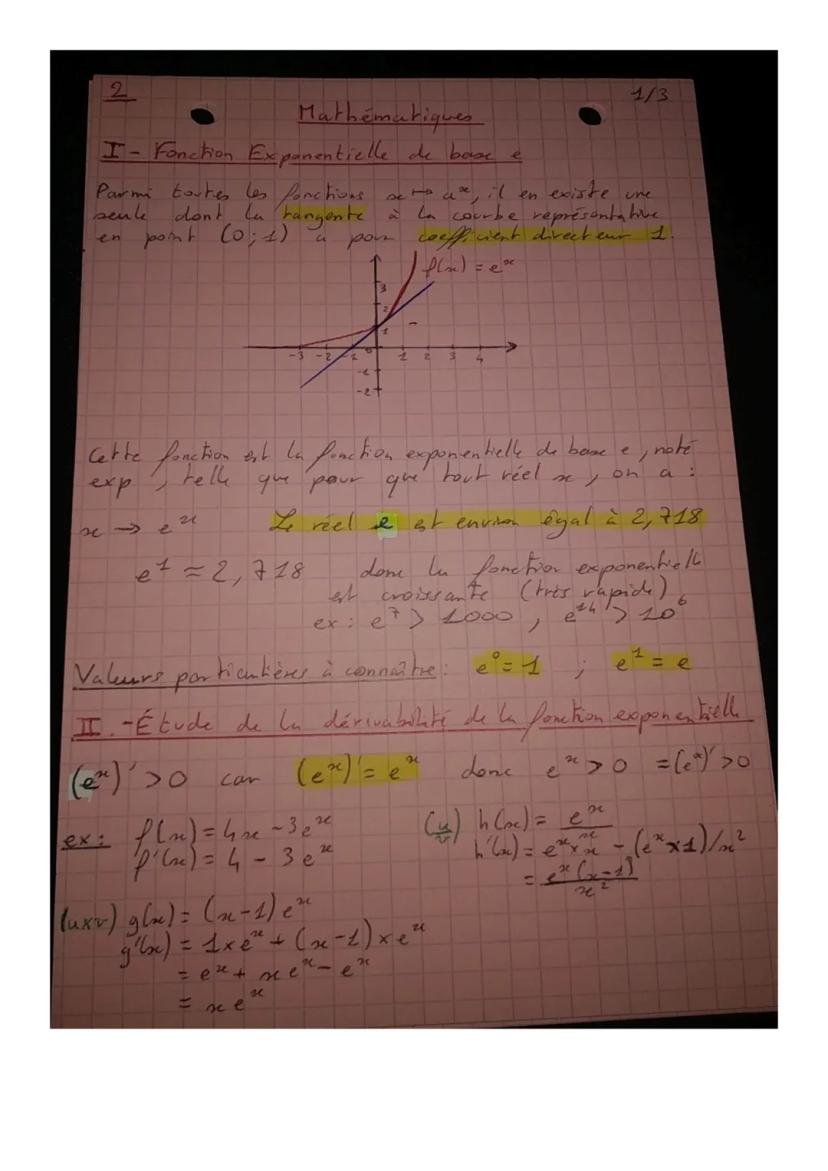 2
1/3
Mathématiques
I - Fonction Exponentielle de base e
Parmi toutes les fonctions x ↦ aˣ, il en existe une
seule dont la tangente à la courbe représentative
en point (0;1) a pour coefficient directeur 1.
f(x) = eˣ
3
2
1
-3 -2 -1 0 1 2 3 4
-1
-2
Cette fonction est la fonction exponentielle de base e, noté
exp, telle que pour que tout réel x, on a :
x → eˣ Le réel e est environ égal à 2,718
e¹ ≈ 2,718 donc la fonction exponentielle
est croissante (très rapide)
ex : e⁷ > 1000, e¹⁴ > 10⁶
Valeurs particulières à connaître : e⁰ = 1 ; e¹ = e
II. - Étude de la dérivabilité de la fonction exponentielle
(eˣ)' > 0 car (eˣ)' = eˣ donc eˣ > 0 = (eˣ)' > 0
ex : f(x) = 4x - 3eˣ
f'(x) = 4 - 3eˣ
(u/v) h(x) = eˣ/x
h'(x) = eˣ × x - (eˣ × 1)/x²
= eˣ(x-1)/x²
(u×v) g(x) = (x-1)eˣ
g'(x) = 1 × eˣ + (x-1) × eˣ
= eˣ + xeˣ - eˣ
= xeˣ